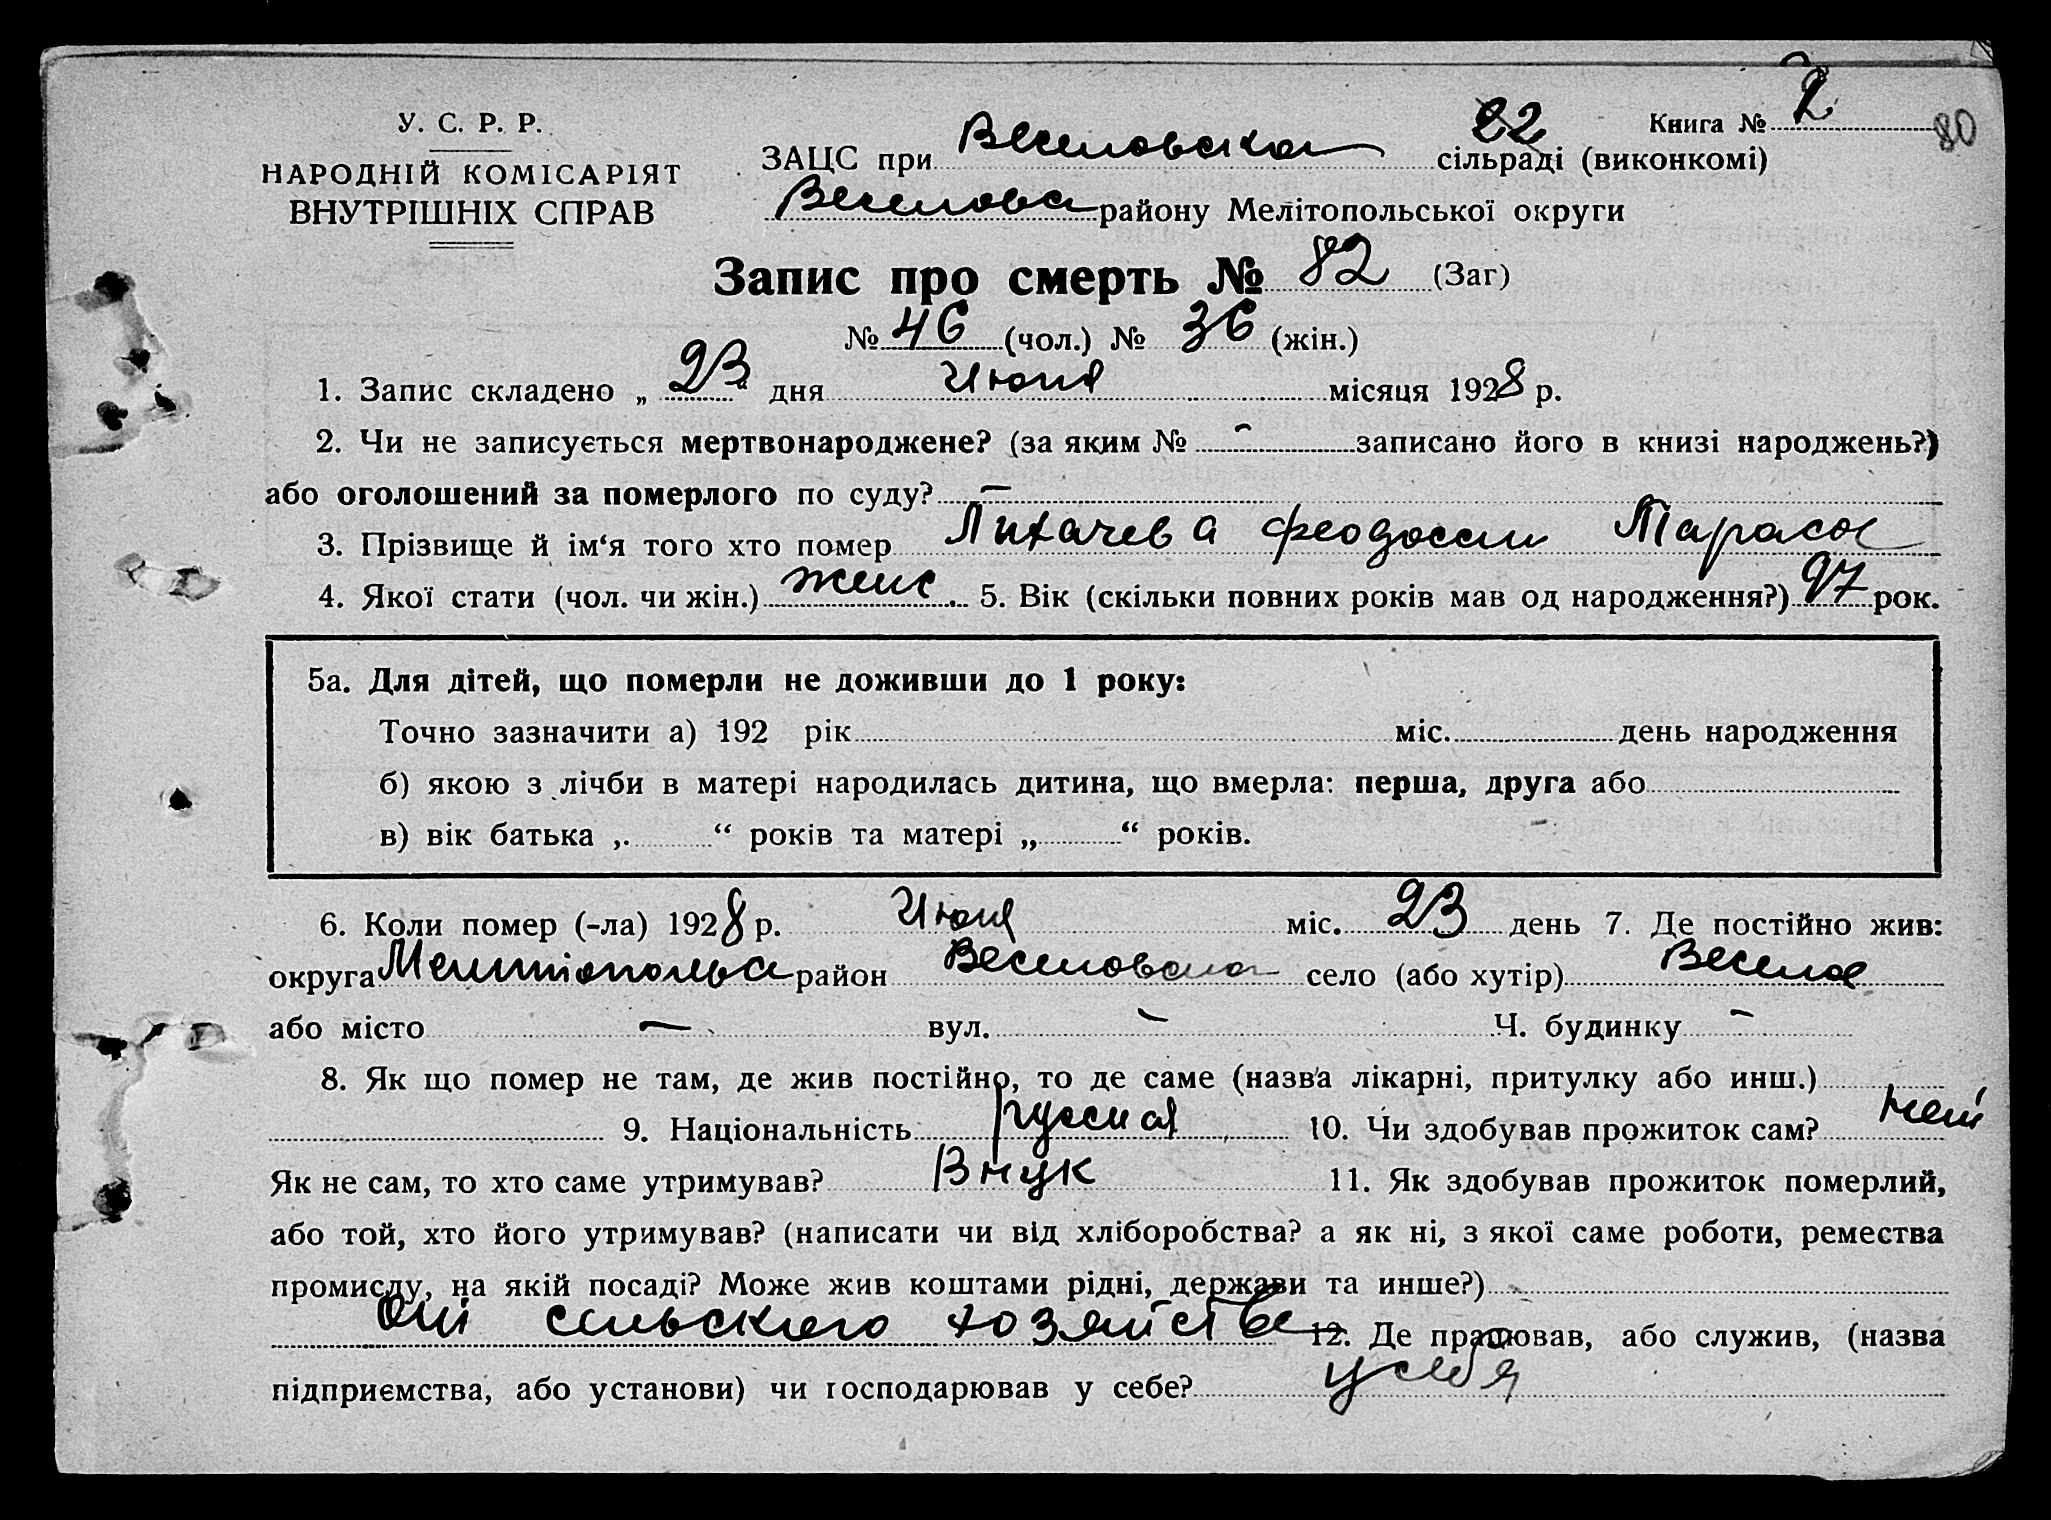 У. С. Р. Р.
НАРОДНІЙ КОМІСАРІЯТ
ВНУТРІШНІХ СПРАВ
22 Книга № 2 80
ЗАЦС при Веселовска сільраді (виконкомі)
Веселовс району Мелітопольської округи
Запис про смерть № 82 (Заг)
№ 46 (чол.) № 36 (жін.)
1. Запис складено „ 23 “ дня Июня місяця 1928 р.
2. Чи не записується мертвонароджене? (за яким № - записано його в книзі народжень?)
або оголошений за померлого по суду? -
3. Прізвище й ім‘я того хто помер Лихачева Феодосии Тарасов
4. Якої стати (чол. чи жін.) женс. 5. Вік (скільки повних років мав од народження?) 97 рок.
5а. Для дітей, що померли не доживши до 1 року:
Точно зазначити а) 192 рік міс. день народження
б) якою з лічби в матері народилась дитина, що вмерла: перша, друга або
в) вік батька ,. “ років та матері „ “ років.
6. Коли помер (-ла) 1928 р. Июня міс. 23 день 7. Де постійно жив:
округа Мелитопольс район Веселовска село (або хутір) Веселое
або місто - вул. - Ч. будинку -
8. Як що помер не там, де жив постійно, то де саме (назва лікарні, притулку або инш.)
9. Національність русская 10. Чи здобував прожиток сам? нет
Як не сам, то хто саме утримував? Внук 11. Як здобував прожиток померлий,
або той, хто його утримував? (написати чи від хліборобства? а як ні, з якої саме роботи, ремества
промислу, на якій посаді? Може жив коштами рідні, держави та инше?)
От сельского хозяйства 12. Де працював, або служив, (назва
підприємства, або установи) чи господарював у себе? у себя